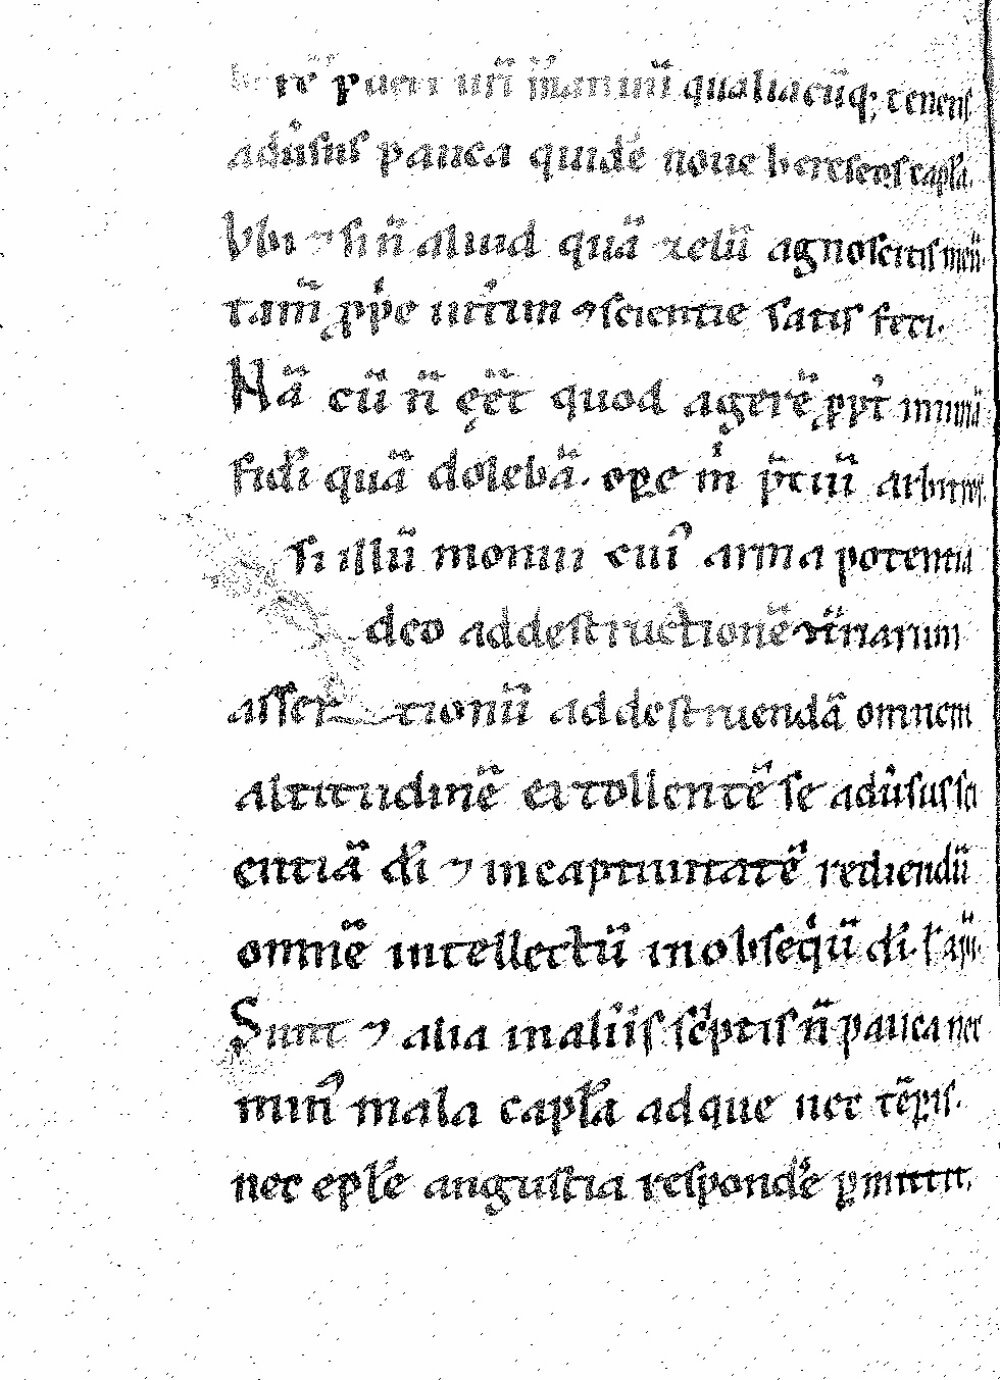 rē pueri ur̄i in̄ manū ur̄i qualiacūq; tenens
adûsus pauca quidē noue heresens capl̄a.
Vbi ⁊ si n̄ aliud quā zelū agnoscitis meū.
tam̄ pp̄e urīm ꝯscientie satis feci.
Nā cū n̄ ęēt quod agerē ppt̄
fidī quā dolebā. ope m̄ p̄ciū
si illū monui cui᾽ arma potentia
deo addestructionē ur̄iarum
asser tionū addestruendā omnem
altitudinē extollentē se adûsus sci
entiā dī ⁊ incaptiuitatē rediendū
omnē intellectū inobsequiū dī.
Sunt ⁊ alia inaliis sc̄ptis n̄ pauca nec
min᾽ mala capl̄a adque nec tēpis.
nec epl̄e angustia respondē̄ pmittit.